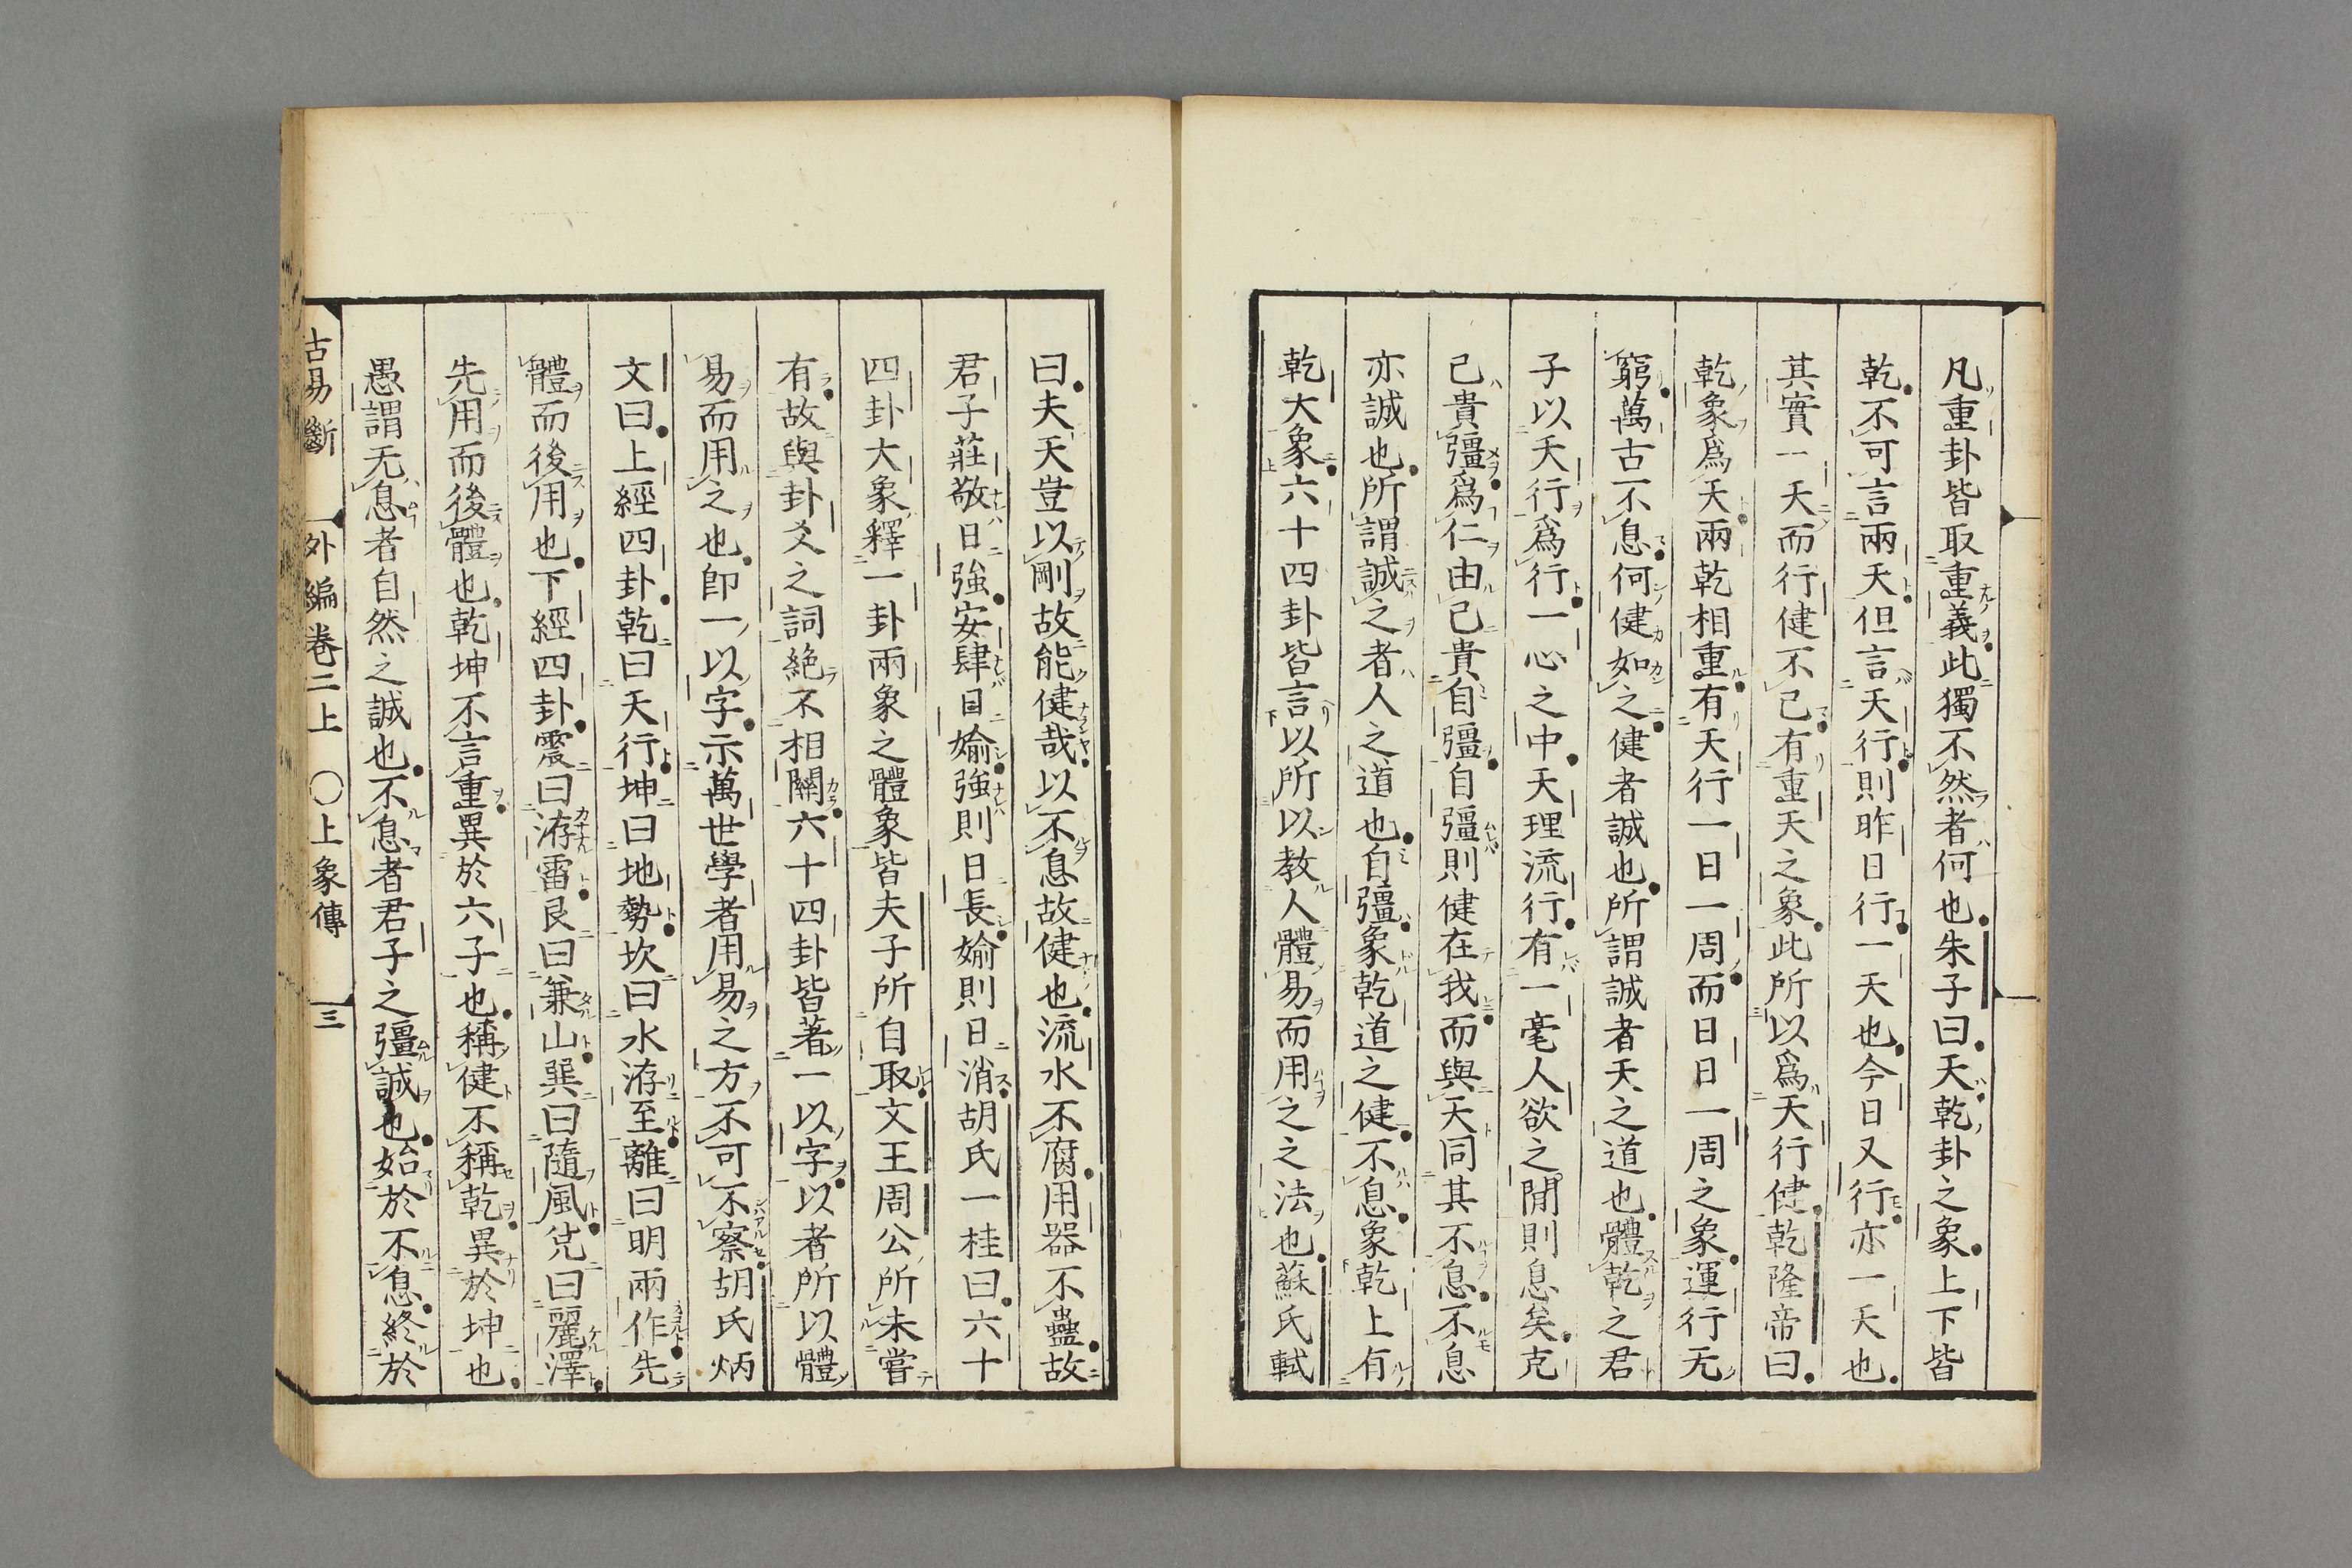 凡重卦皆取重義此獨不然者何也朱子曰天乾卦之象上下皆
乾不可言兩天但言天行則昨日行一天也今日又行亦一天也
其實一天而行健不已有重天之象此所以爲天行健乾隆帝曰
乾象爲天兩乾相重有天行一日一周而日日一周之象運行无
窮萬古不息何健如之健者誠也所謂誠者天之道也體乾之君
子以天行爲行一心之中天理流行有一毫人欲之閒則息矣克
己貴彊爲仁由己貴自彊自彊則健在我而與天同其不息不息
亦誠也所謂誠之者人之道也自彊象乾道之健不息象乾上有
乾大象六十四卦皆言以所以教人體易而用之之法也蘇氏軾
曰夫天豈以剛故能健哉以不息故健也流水不腐用器不蠱故
君子莊敬日強安肆日媮強則日長媮則日消胡氏一桂曰六十
四卦大象釋一卦兩象之體象皆夫子所自取文王周公所未嘗
有故與卦爻之詞絶不相關六十四卦皆著一以字以者所以體
易而用之也卽一以字示萬世學者用易之方不可不察胡氏炳
文曰上經四卦乾曰天行坤曰地勢坎曰水洊至離曰明兩作先
體而後用也下經四卦震曰洊雷艮曰兼山巽曰隨風兌曰麗澤
先用而後體也乾坤不言重異於六子也稱健不稱乾異於坤也
愚謂无息者自然之誠也不息者君子之彊誠也始於不息終於
古易斷　外編卷二上　〇上象傳　三